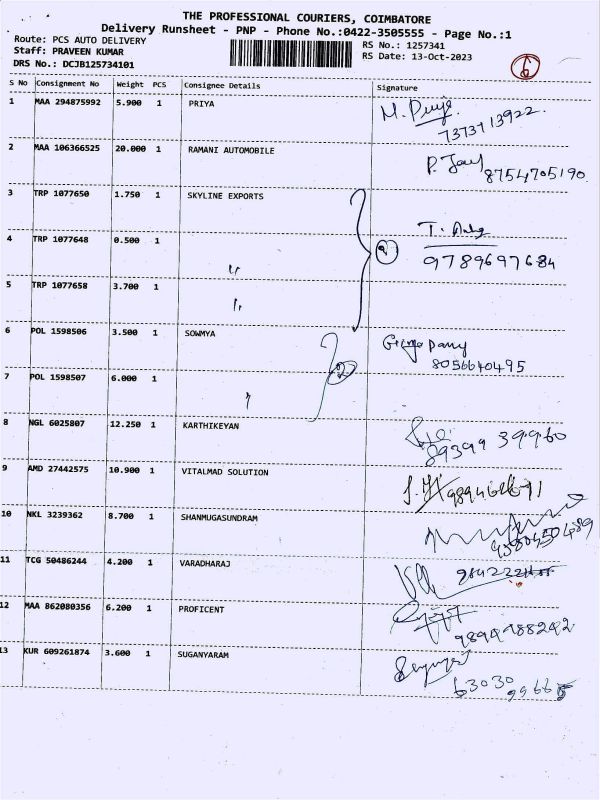 THE PROFESSIONAL COURIERS, COIMBATORE
Delivery Runsheet - PNP - Phone No.:0422-3505555 - Page No.:1
Route: PCS AUTO DELIVERY
RS No.: 1257341
Staff: PRAVEEN KUMAR
RS Date: 13-Oct-2023
DRS No.: DCJB125734101
6
S No Consignment No Weight PCS Consignee Details Signature
1 MAA 294875992 5.900 1 PRIYA M. Priya
7373713922
2 MAA 106366525 20.000 1 RAMANI AUTOMOBILE
8754705190
3 TRP 1077650 1.750 1 SKYLINE EXPORTS
4 TRP 1077648 0.500 1 " 9789697684
5 TRP 1077658 3.700 1 "
6 POL 1598506 3.500 1 SOWMYA
8056640495
7 POL 1598507 6.000 1 " 2
8 NGL 6025807 12.250 1 KARTHIKEYAN
89399 39960
9 AMD 27442575 10.900 1 VITALMAD SOLUTION
10 NKL 3239362 8.700 1 SHANMUGASUNDRAM
11 TCG 50486244 4.200 1 VARADHARAJ
12 MAA 862080356 6.200 1 PROFICENT
13 KUR 609261874 3.600 1 SUGANYARAM
63030
99665